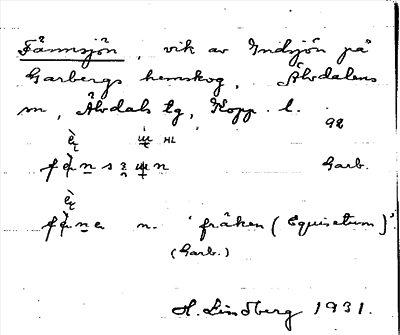 Fännsjön, vik av Indsjön på
Garbergs hemskog, Älvdalens
m, Älvdals tg, Kopp. l.
92
Garb.
n. 'fräken (Equisetum)'.
(Garb.)
H. Lindberg 1931.